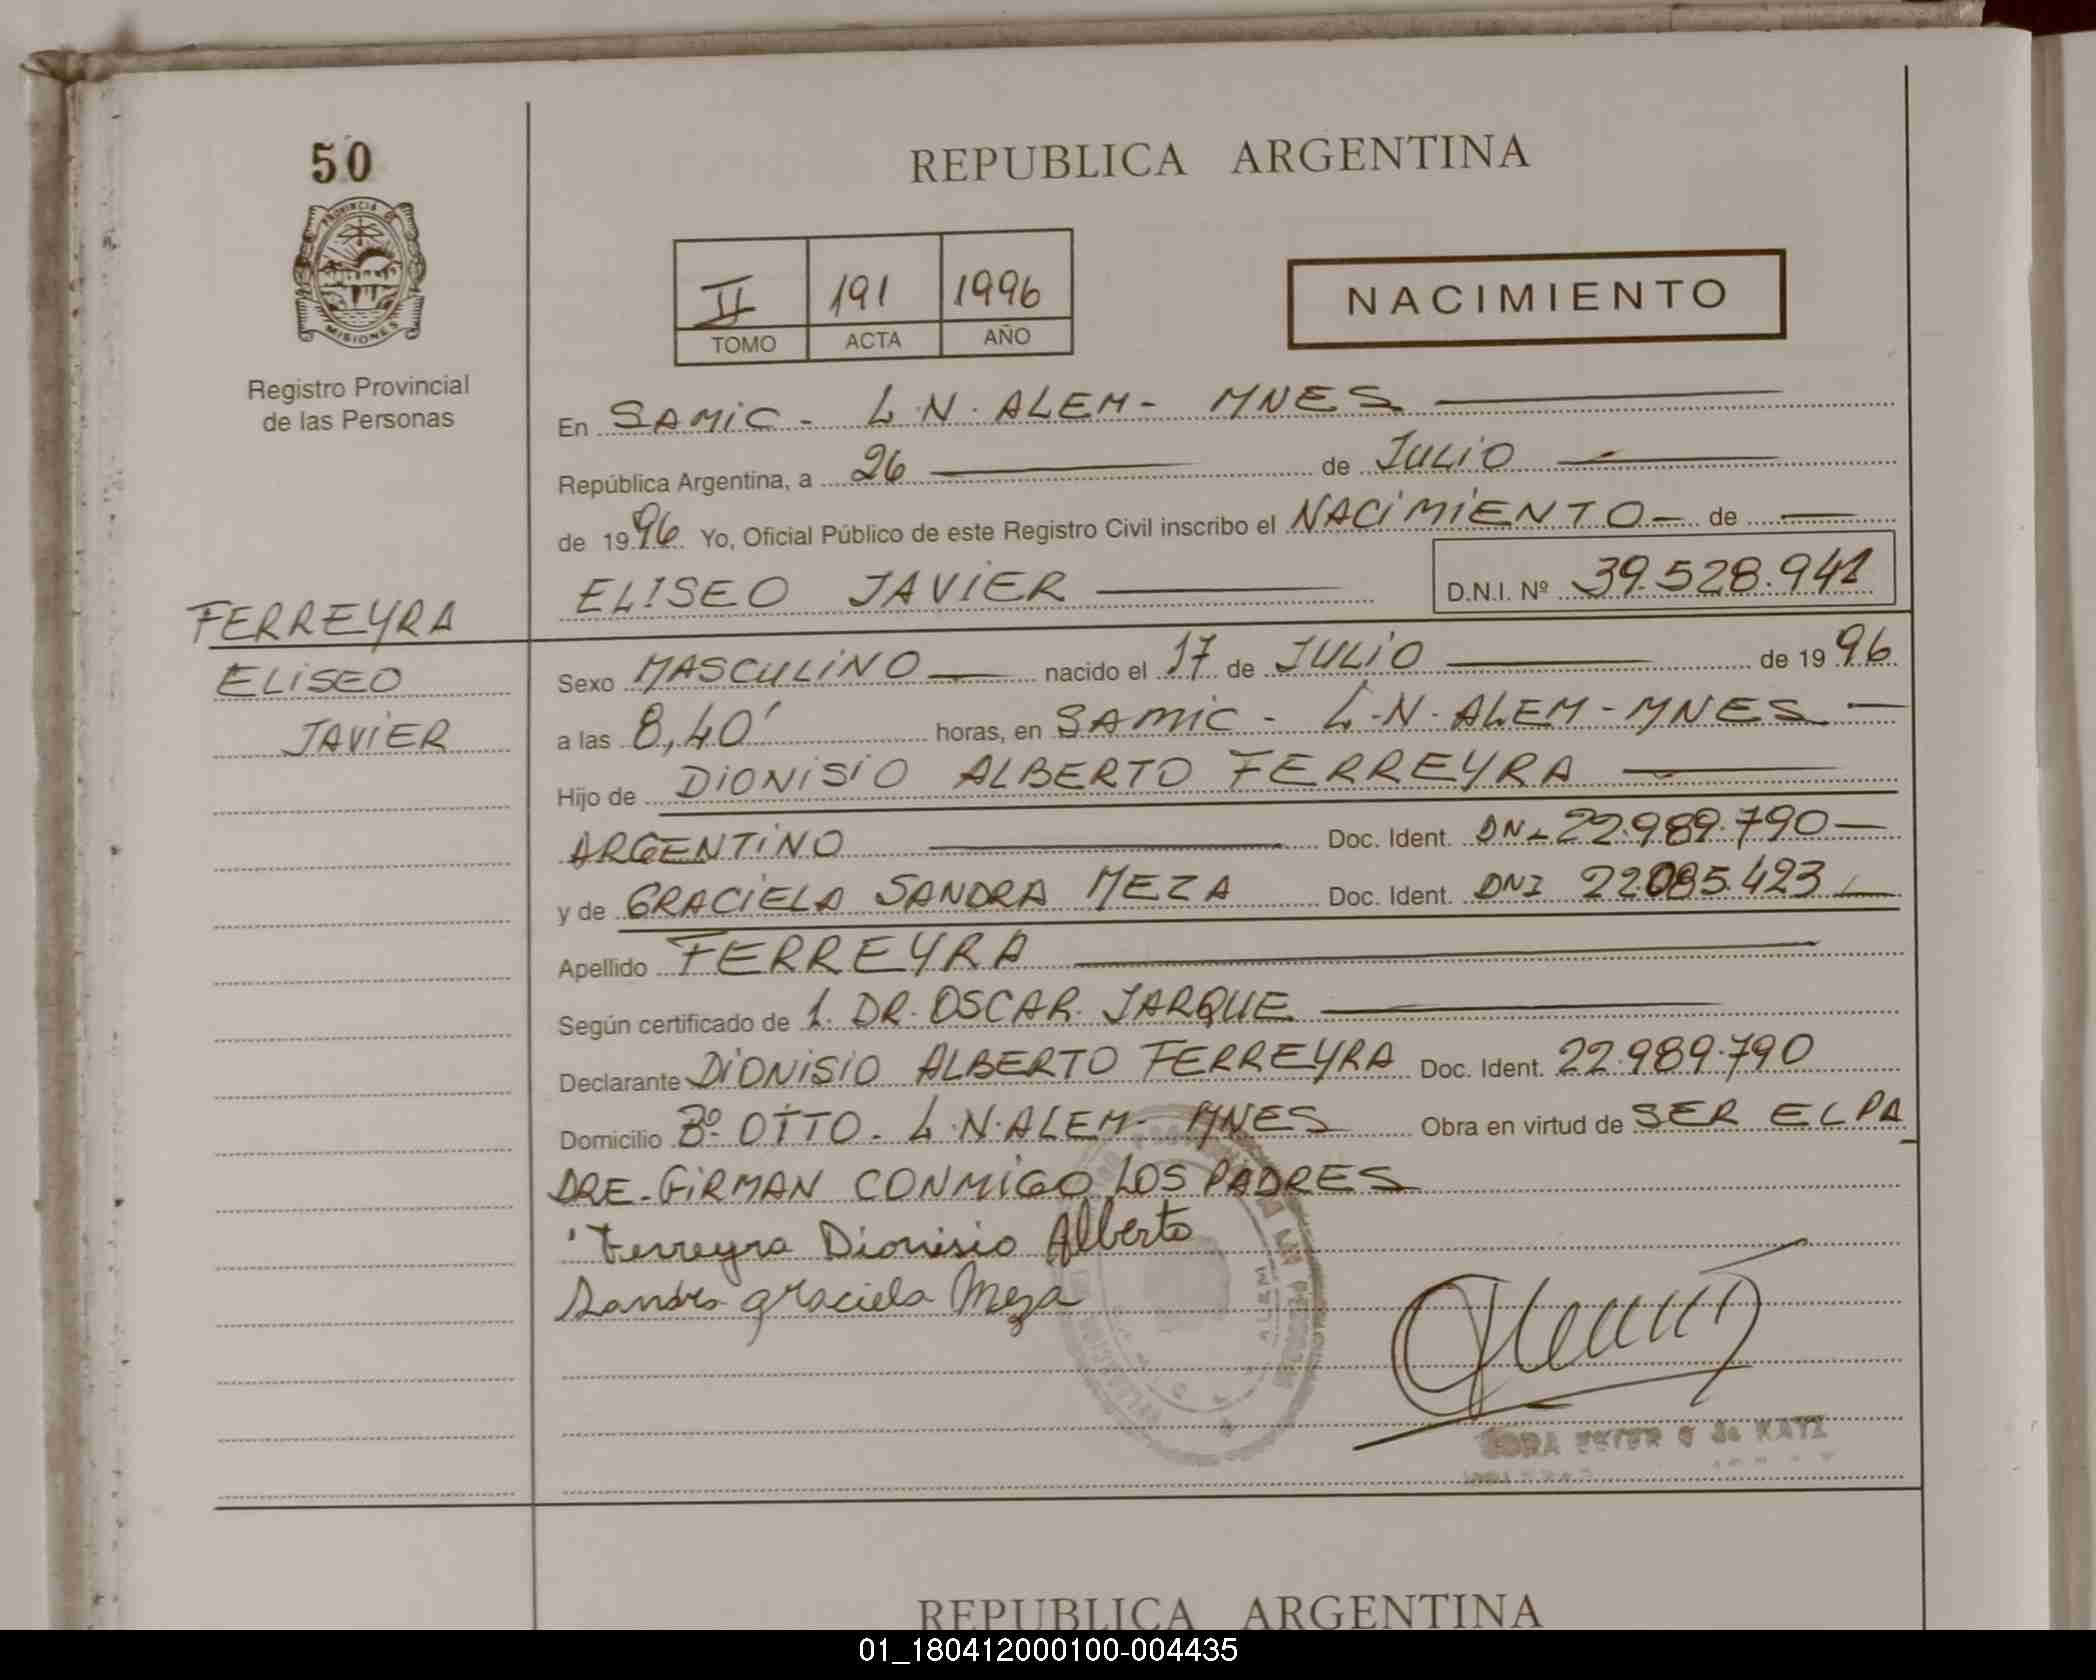 50
PROVINCIA DE
MISIONES
Registro Provincial
de las Personas
REPUBLICA ARGENTINA
II 191 1996
TOMO ACTA AÑO
NACIMIENTO
En SAMIC - L.N. ALEM - MNES
República Argentina, a 26 de JULIO
de 1996 Yo, Oficial Público de este Registro Civil inscribo el NACIMIENTO - de
ELISEO JAVIER D.N.I. Nº 39.528.941
FERREYRA
ELISEO
JAVIER
Sexo MASCULINO nacido el 17 de JULIO de 1996
a las 8,40' horas, en SAMIC - L.N. ALEM - MNES
Hijo de DIONISIO ALBERTO FERREYRA
ARGENTINO Doc. Ident. DN- 22.989.790
y de GRACIELA SANDRA MEZA Doc. Ident. DNI 22.085.423
Apellido FERREYRA
Según certificado de 1. DR. OSCAR JARQUE
Declarante DIONISIO ALBERTO FERREYRA Doc. Ident. 22.989.790
Domicilio Bº OTTO - L.N. ALEM - MNES Obra en virtud de SER EL PA
DRE - FIRMAN CONMIGO LOS PADRES
Ferreyra Dionisio Alberto
Sandra graciela Meza
ALEM
de KATZ
REPUBLICA ARGENTINA
01_180412000100-004435